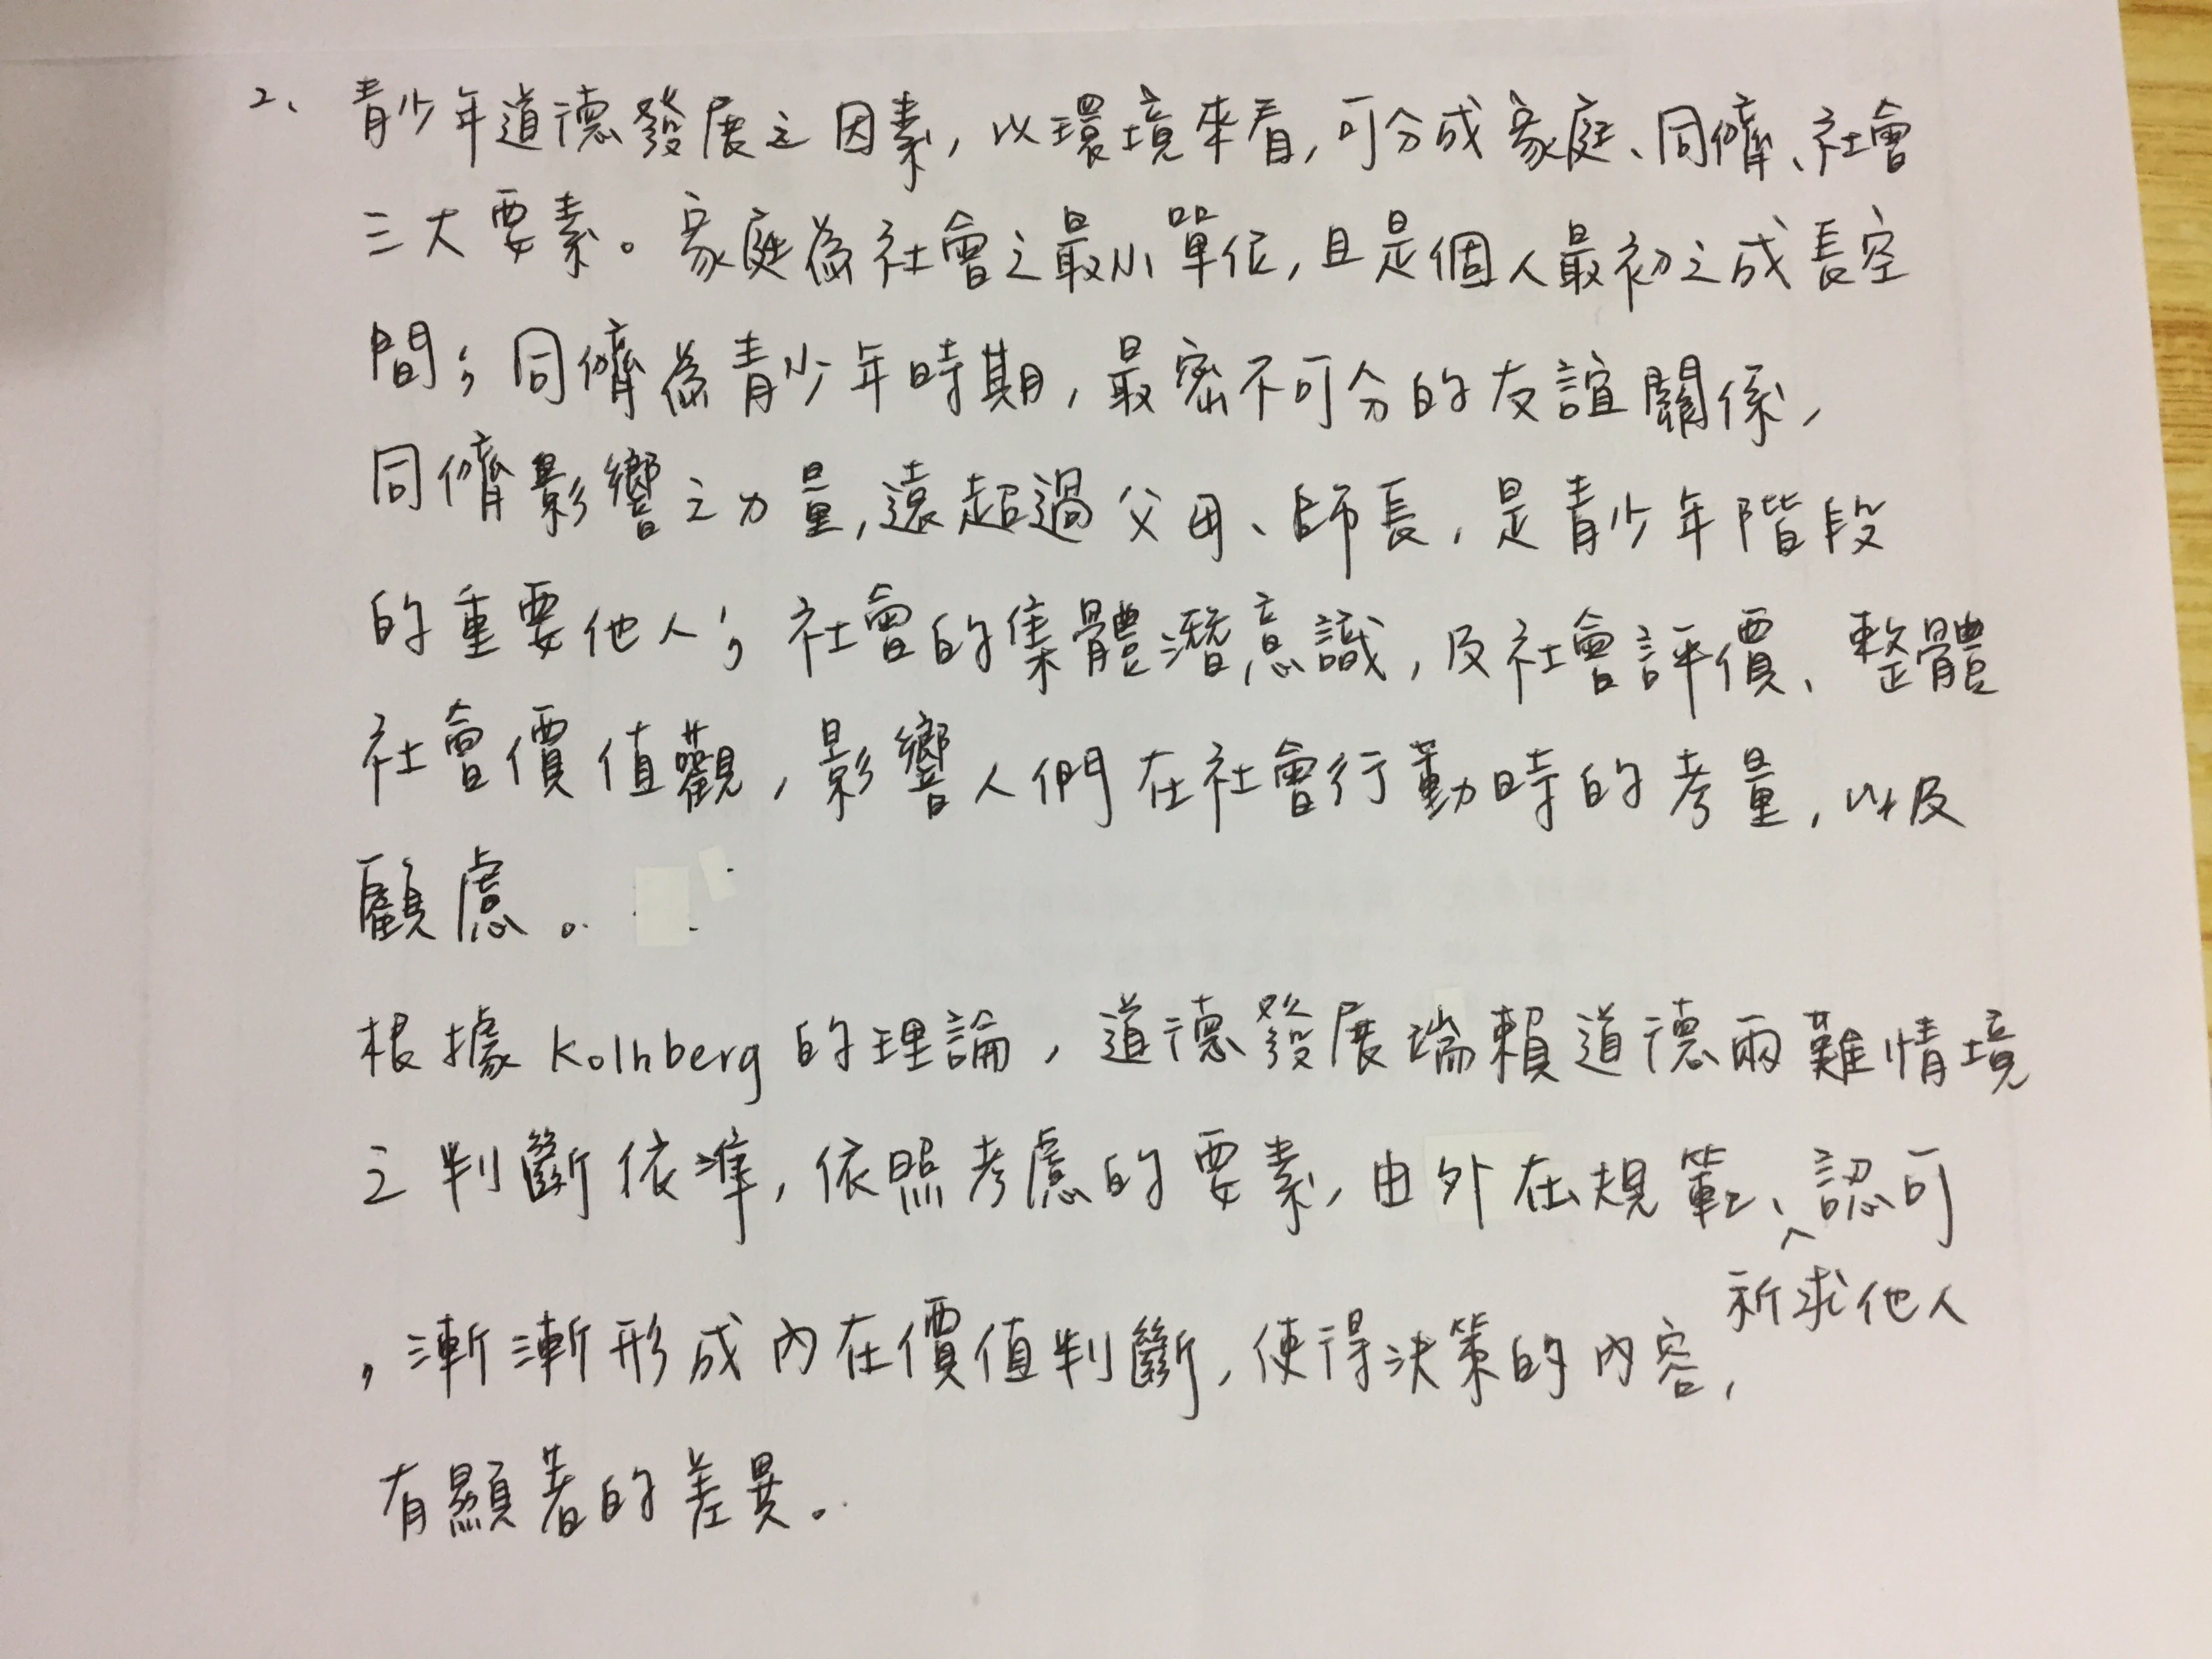 2、青少年道德發展之因素，以環境來看，可分成家庭、同儕、社會
三大要素。家庭為社會之最小單位，且是個人最初之成長空
間；同儕為青少年時期，最密不可分的友誼關係，
同儕影響之力量，遠超過父母、師長，是青少年階段
的重要他人；社會的集體潛意識，及社會評價、整體
社會價值觀，影響人們在社會行動時的考量，以及
顧慮。
根據Kolhberg的理論，道德發展端賴道德兩難情境
之判斷依準，依照考慮的要素，由外在規範、認可
祈求他人
，漸漸形成內在價值判斷，使得決策的內容，
有顯著的差異。